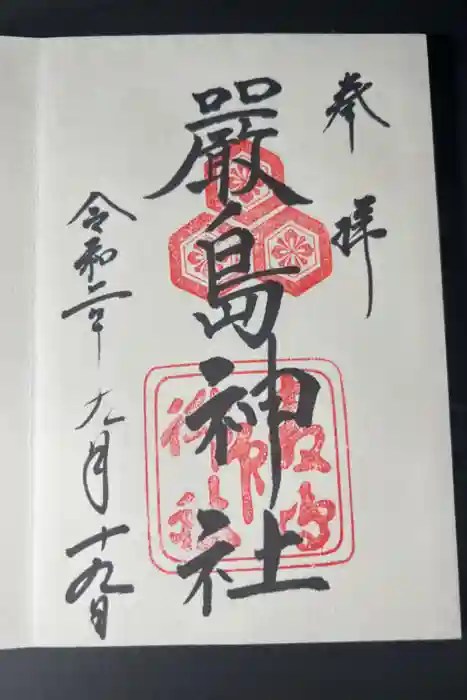 奉拝
嚴島神社
令和二年
九月十九日